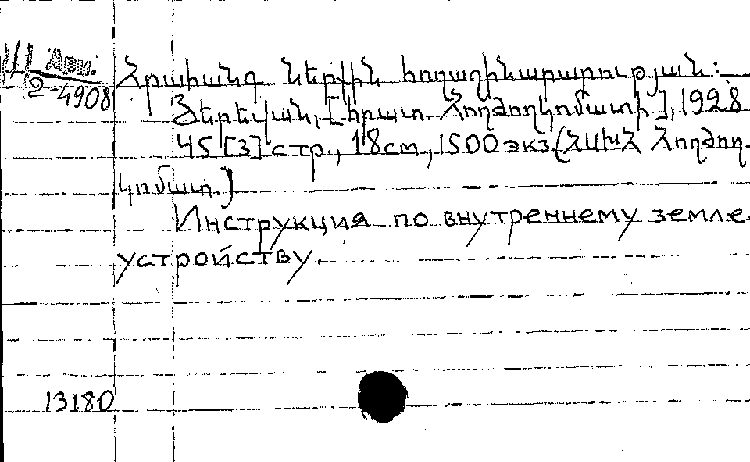 III Հրատ.
2-4908
Հրահանգ ներքին հողաշինարարության:
Յերեվան, [հրատ. Հողժողկոմատի], 1928
45 [3] стр., 18 cm, 1500 экз. (ՀՍԽՀ Հողժող-
կոմատ.)
Инструкция по внутреннему земле-
устройству.
13180